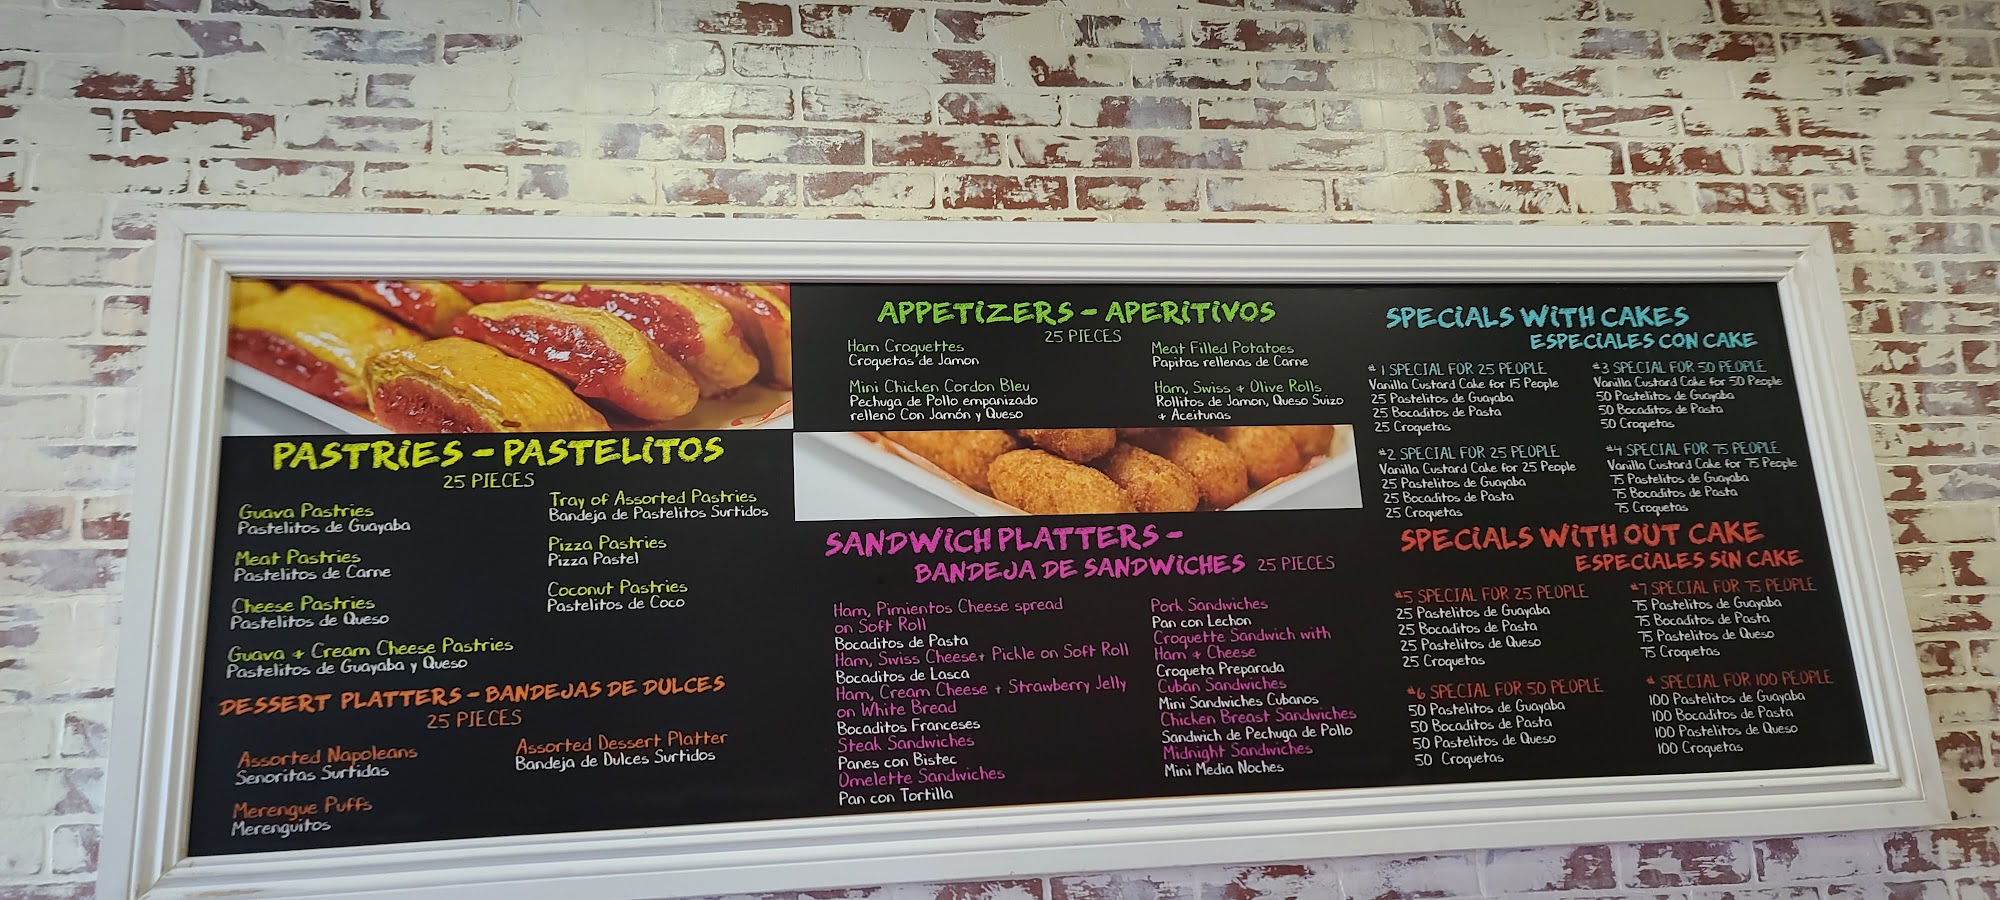 PASTRIES - PASTELITOS
25 PIECES
Guava Pastries
Pastelitos de Guayaba
Meat Pastries
Pastelitos de Carne
Cheese Pastries
Pastelitos de Queso
Guava + Cream Cheese Pastries
Pastelitos de Guayaba y Queso
Tray of Assorted Pastries
Bandeja de Pastelitos Surtidos
Pizza Pastries
Pizza Pastel
Coconut Pastries
Pastelitos de Coco
DESSERT PLATTERS - BANDEJAS DE DULCES
25 PIECES
Assorted Napoleans
Senoritas Surtidas
Merengue Puffs
Merenguitos
Assorted Dessert Platter
Bandeja de Dulces Surtidos
APPETIZERS - APERITIVOS
25 PIECES
Ham Croquettes
Croquetas de Jamon
Mini Chicken Cordon Bleu
Pechuga de Pollo empanizado
relleno Con Jamón y Queso
Meat Filled Potatoes
Papitas rellenas de Carne
Ham, Swiss + Olive Rolls
Rollitos de Jamon, Queso Suizo
+ Aceitunas
SANDWICH PLATTERS -
BANDEJA DE SANDWICHES 25 PIECES
Ham, Pimientos Cheese spread
on Soft Roll
Bocaditos de Pasta
Ham, Swiss Cheese+ Pickle on Soft Roll
Bocaditos de Lasca
Ham, Cream Cheese + Strawberry Jelly
on White Bread
Bocaditos Franceses
Steak Sandwiches
Panes con Bistec
Omelette Sandwiches
Pan con Tortilla
Pork Sandwiches
Pan con Lechon
Croquette Sandwich with
Ham + Cheese
Croqueta Preparada
Cuban Sandwiches
Mini Sandwiches Cubanos
Chicken Breast Sandwiches
Sandwich de Pechuga de Pollo
Midnight Sandwiches
Mini Media Noches
SPECIALS WITH CAKES
ESPECIALES CON CAKE
#1 SPECIAL FOR 25 PEOPLE
Vanilla Custard Cake for 15 People
25 Pastelitos de Guayaba
25 Bocaditos de Pasta
25 Croquetas
#2 SPECIAL FOR 25 PEOPLE
Vanilla Custard Cake for 25 People
25 Pastelitos de Guayaba
25 Bocaditos de Pasta
25 Croquetas
#3 SPECIAL FOR 50 PEOPLE
Vanilla Custard Cake for 50 People
50 Pastelitos de Guayaba
50 Bocaditos de Pasta
50 Croquetas
#4 SPECIAL FOR 75 PEOPLE
Vanilla Custard Cake for 75 People
75 Pastelitos de Guayaba
75 Bocaditos de Pasta
75 Croquetas
SPECIALS WITH OUT CAKE
ESPECIALES SIN CAKE
#5 SPECIAL FOR 25 PEOPLE
25 Pastelitos de Guayaba
25 Bocaditos de Pasta
25 Pastelitos de Queso
25 Croquetas
#6 SPECIAL FOR 50 PEOPLE
50 Pastelitos de Guayaba
50 Bocaditos de Pasta
50 Pastelitos de Queso
50 Croquetas
#7 SPECIAL FOR 75 PEOPLE
75 Pastelitos de Guayaba
75 Bocaditos de Pasta
75 Pastelitos de Queso
75 Croquetas
# SPECIAL FOR 100 PEOPLE
100 Pastelitos de Guayaba
100 Bocaditos de Pasta
100 Pastelitos de Queso
100 Croquetas